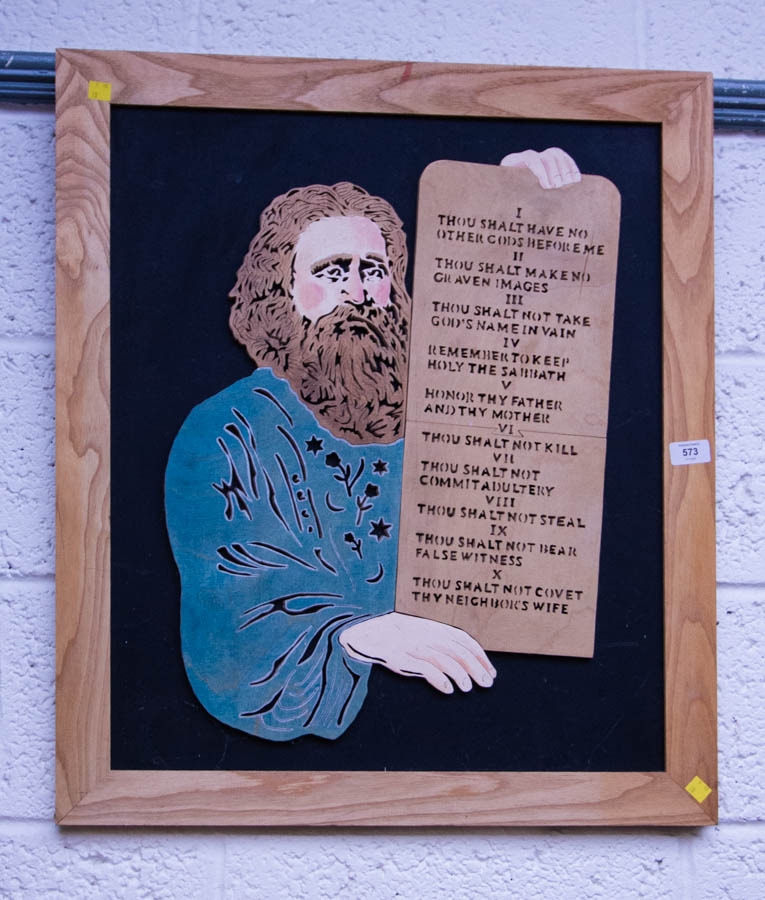 I
THOU SHALT HAVE NO
OTHER GODS BEFORE ME
II
THOU SHALT MAKE NO
GRAVEN IMAGES
III
THOU SHALT NOT TAKE
GOD'S NAME IN VAIN
IV
REMEMBER TO KEEP
HOLY THE SABBATH
V
HONOR THY FATHER
AND THY MOTHER
VI
THOU SHALT NOT KILL
VII
THOU SHALT NOT
COMMIT ADULTERY
VIII
THOU SHALT NOT STEAL
IX
THOU SHALT NOT BEAR
FALSE WITNESS
X
THOU SHALT NOT COVET
THY NEIGHBOR'S WIFE
573